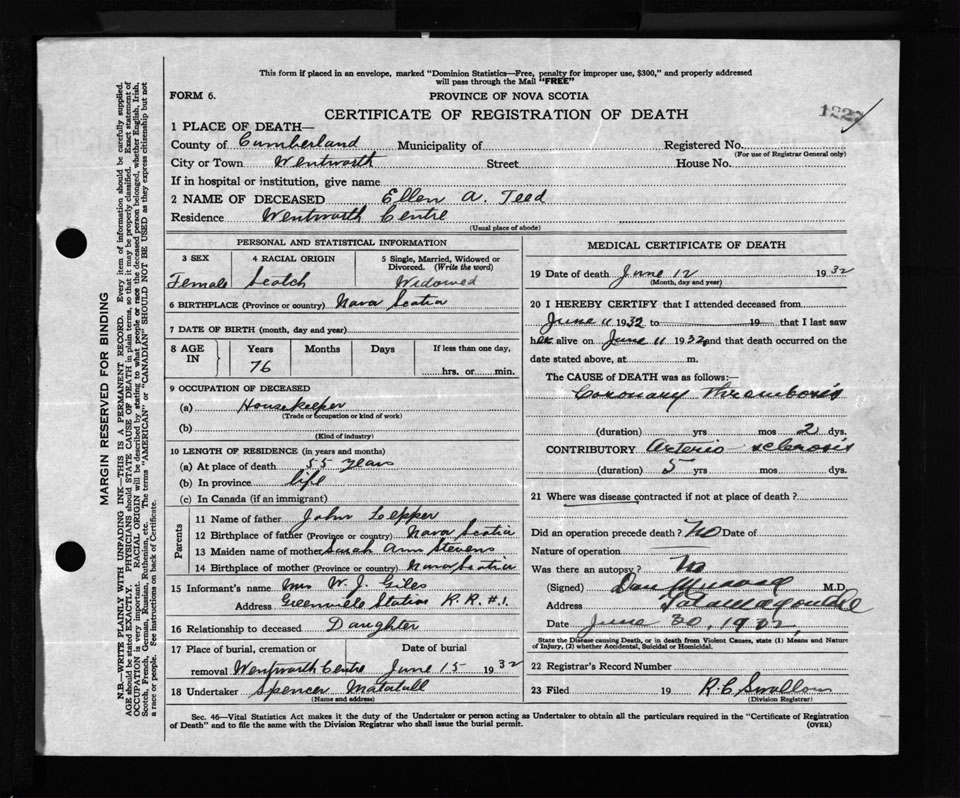 This form if placed in an envelope, marked "Dominion Statistics—Free, penalty for improper use, $300," and properly addressed
will pass through the Mail "FREE"
FORM 6.
PROVINCE OF NOVA SCOTIA
CERTIFICATE OF REGISTRATION OF DEATH
1 PLACE OF DEATH—
County of Cumberland Municipality of Registered No.
(For use of Registrar General only)
City or Town Wentworth Street House No.
If in hospital or institution, give name
2 NAME OF DECEASED Ellen A. Teed
Residence Wentworth Centre
(Usual place of abode)
PERSONAL AND STATISTICAL INFORMATION
3 SEX 4 RACIAL ORIGIN 5 Single, Married, Widowed or Divorced. (Write the word)
Female Scotch Widowed
6 BIRTHPLACE (Province or country) Nova Scotia
7 DATE OF BIRTH (month, day and year)
8 AGE IN Years Months Days If less than one day,
76 hrs. or min.
9 OCCUPATION OF DECEASED
(a) Housekeeper
(Trade or occupation or kind of work)
(b)
(Kind of industry)
10 LENGTH OF RESIDENCE (in years and months)
(a) At place of death 55 years
(b) In province life
(c) In Canada (if an immigrant)
Parents
11 Name of father John Lepper
12 Birthplace of father (Province or country) Nova Scotia
13 Maiden name of mother Sarah Ann Stevens
14 Birthplace of mother (Province or country) Nova Scotia
15 Informant's name Mrs W. J. Giles
Address Greenville Station R.R. #1.
16 Relationship to deceased Daughter
17 Place of burial, cremation or Date of burial
removal Wentworth Centre June 15 1932
18 Undertaker Spencer Matatall
(Name and address)
MEDICAL CERTIFICATE OF DEATH
19 Date of death June 12 1932
(Month, day and year)
20 I HEREBY CERTIFY that I attended deceased from
June 11 1932 to 19 that I last saw
her alive on June 11 1932 and that death occurred on the
date stated above, at m.
The CAUSE of DEATH was as follows:—
Coronary Thrombosis
(duration) yrs mos 2 dys.
CONTRIBUTORY Arterio sclerosis
(duration) 5 yrs mos dys.
21 Where was disease contracted if not at place of death?
Did an operation precede death? No Date of
Nature of operation
Was there an autopsy? No
(Signed) Dan M.D.
Address Tatamagouche
Date June 30, 1932,
State the Disease causing Death, or in death from Violent Causes, state (1) Means and Nature
of Injury, (2) whether Accidental, Suicidal or Homicidal.
22 Registrar's Record Number
23 Filed 19 R.C. Swallow
(Division Registrar)
Sec. 46—Vital Statistics Act makes it the duty of the Undertaker or person acting as Undertaker to obtain all the particulars required in the "Certificate of Registration
of Death" and to file the same with the Division Registrar who shall issue the burial permit. (OVER)
MARGIN RESERVED FOR BINDING
N.B.—WRITE PLAINLY WITH UNFADING INK—THIS IS A PERMANENT RECORD. Every item of information should be carefully supplied.
AGE should be stated EXACTLY. PHYSICIANS should STATE CAUSE OF DEATH in plain terms, so that it may be properly classified. Exact statement of
OCCUPATION is very important. RACIAL ORIGIN will be described by stating to what people or race the deceased person belonged, whether English, Irish,
Scotch, French, German, Russian, Ruthenian, etc. The terms "AMERICAN" or "CANADIAN" SHOULD NOT BE USED as they express citizenship but not
a race or people. See instructions on back of Certificate.